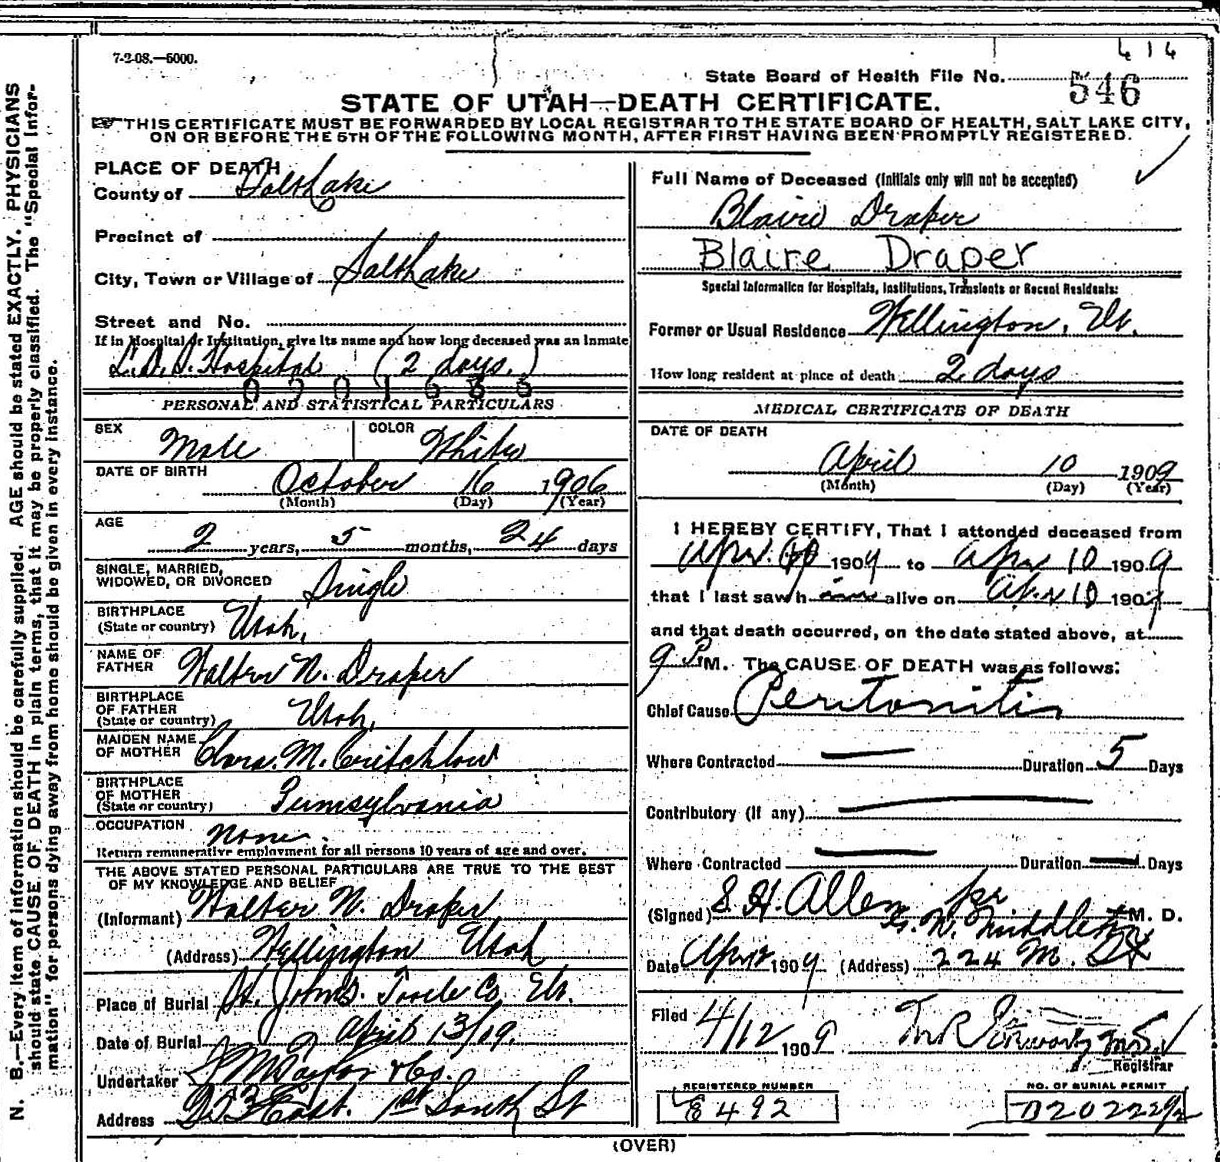 7-2-08.—5000.
414
State Board of Health File No. 546
STATE OF UTAH—DEATH CERTIFICATE.
THIS CERTIFICATE MUST BE FORWARDED BY LOCAL REGISTRAR TO THE STATE BOARD OF HEALTH, SALT LAKE CITY,
ON OR BEFORE THE 5TH OF THE FOLLOWING MONTH, AFTER FIRST HAVING BEEN PROMPTLY REGISTERED.
N. B.—Every item of information should be carefully supplied. AGE should be stated EXACTLY. PHYSICIANS
should state CAUSE OF DEATH in plain terms, that it may be properly classified. The "Special Infor-
mation" for persons dying away from home should be given in every instance.
PLACE OF DEATH
County of Salt Lake
Precinct of
City, Town or Village of Salt Lake
Street and No.
If in Hospital or Institution, give its name and how long deceased was an inmate
L.D.S. Hospital (2 days.)
PERSONAL AND STATISTICAL PARTICULARS
SEX Male COLOR White
DATE OF BIRTH
October 16 1906
(Month) (Day) (Year)
AGE
2 years, 5 months, 24 days
SINGLE, MARRIED,
WIDOWED, OR DIVORCED Single
BIRTHPLACE
(State or country) Utah,
NAME OF
FATHER Walter N. Draper
BIRTHPLACE
OF FATHER
(State or country) Utah,
MAIDEN NAME
OF MOTHER Clara. M. Critchlow
BIRTHPLACE
OF MOTHER
(State or country) Pennsylvania
OCCUPATION None.
Return remunerative employment for all persons 10 years of age and over.
THE ABOVE STATED PERSONAL PARTICULARS ARE TRUE TO THE BEST
OF MY KNOWLEDGE AND BELIEF
(Informant) Walter N. Draper
(Address) Wellington Utah
Place of Burial St. Johns. Tooele Co. Ut.
Date of Burial April 13/09.
Undertaker Taylor & Co.
Address East 1st South St
Full Name of Deceased (Initials only will not be accepted)
Blaire Draper
Blaire Draper
Special Information for Hospitals, Institutions, Transients or Recent Residents:
Former or Usual Residence Wellington, Ut.
How long resident at place of death 2 days
MEDICAL CERTIFICATE OF DEATH
DATE OF DEATH
April 10 1909
(Month) (Day) (Year)
I HEREBY CERTIFY, That I attended deceased from
Apr. 1909 to Apr 10 1909
that I last saw h im alive on Apr 10 1909
and that death occurred, on the date stated above, at
9 P. M. The CAUSE OF DEATH was as follows:
Chief Cause Peritonitis
Where Contracted — Duration 5 Days
Contributory (if any) —
Where Contracted — Duration — Days
(Signed) S. H. Allen per
G. W. Middleton M. D.
Date Apr 12 1909 (Address) 224 M. St
Filed 4/12 1909
Registrar
REGISTERED NUMBER
E8492
NO. OF BURIAL PERMIT
(OVER)